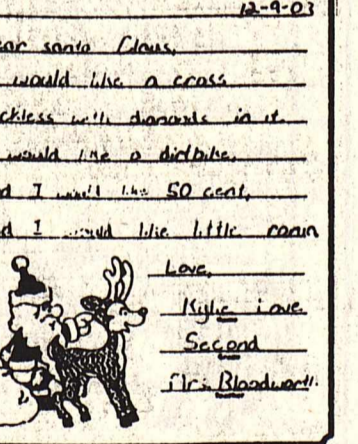 12-9-03
ear santa Claus,
would like a cross
ckless with diamonds in it.
would like a dirtbike.
d I would like 50 cent,
d I would like little
Love,
Kylie Love
Second
Mrs. Bloodworth.